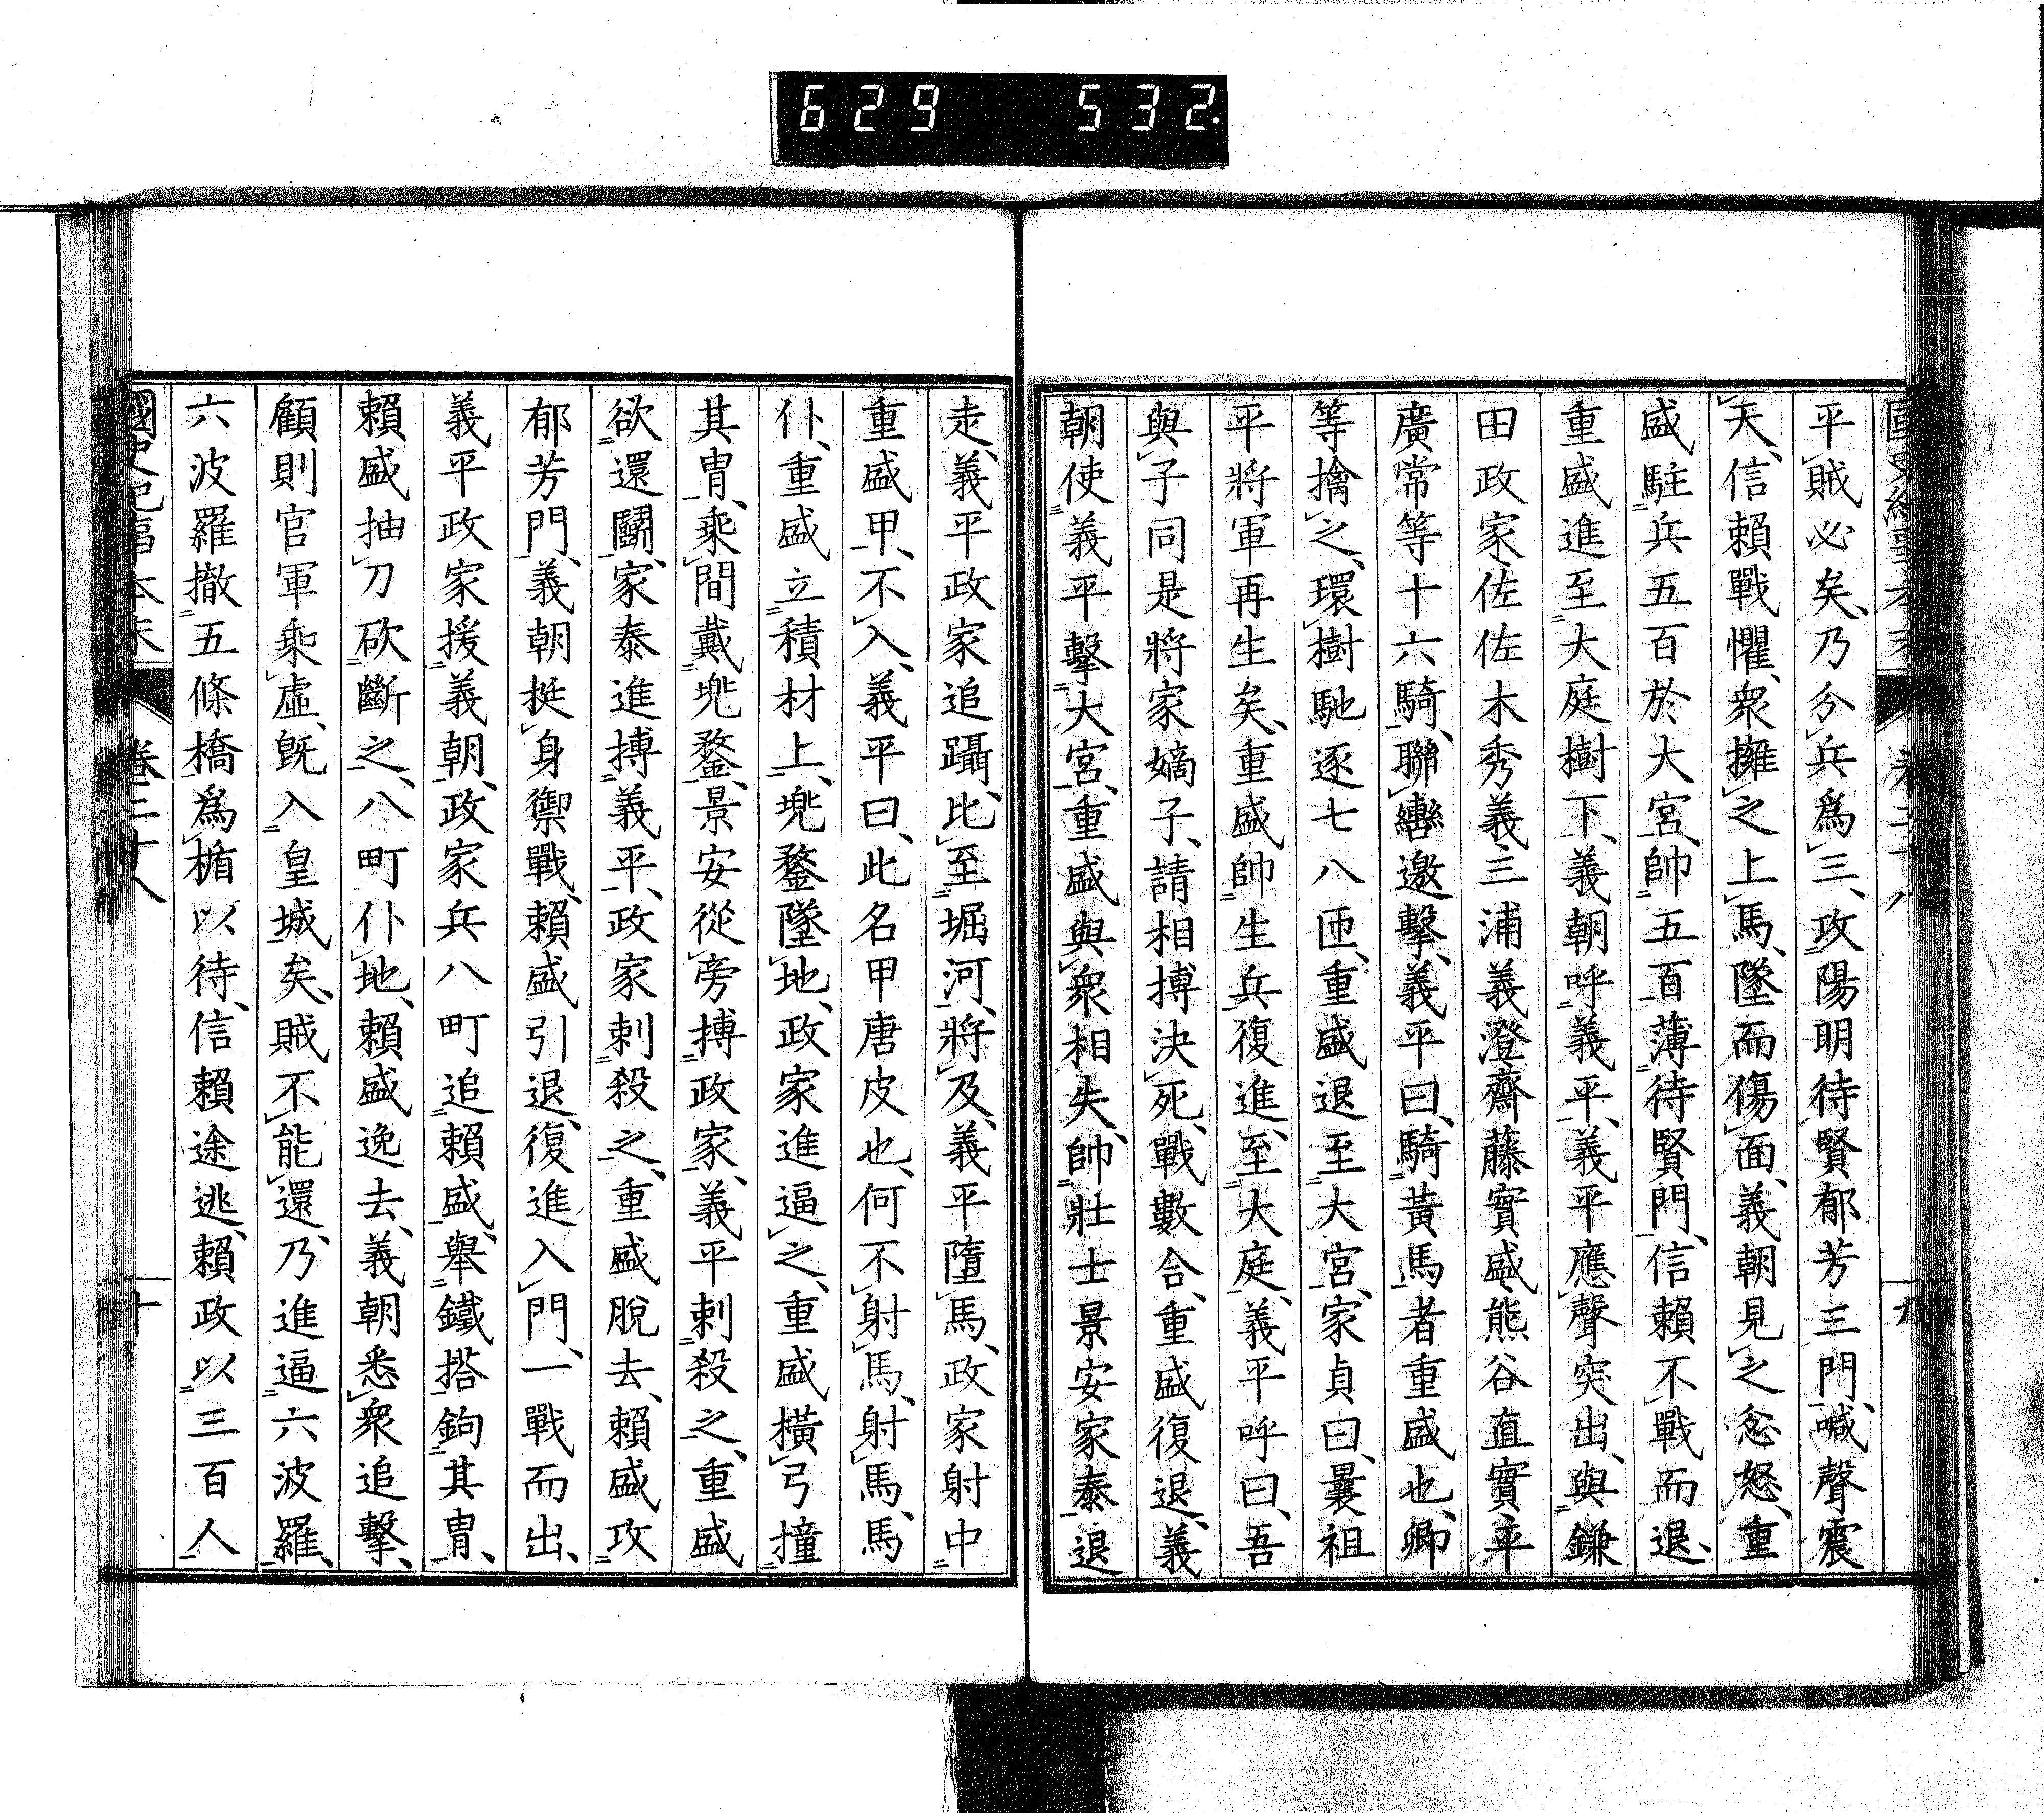 629 532.
平賊必矣、乃分兵爲三、攻陽明待賢郁芳三門、喊聲震
天、信賴戰懼、衆擁之上馬、墜而傷面、義朝見之忿怒、重
盛駐兵五百於大宮、帥五百薄待賢門、信賴不戰而退、
重盛進至大庭樹下、義朝呼義平、義平應聲突出、與鎌
田政家、佐佐木秀義、三浦義澄、齋藤實盛、熊谷直實、平
廣常等十六騎、聯轡邀擊、義平曰、騎黃馬者重盛也、卿
等擒之、環樹馳逐七八匝、重盛退至大宮、家貞曰、曩祖
平將軍再生矣、重盛帥生兵復進、至大庭、義平呼曰、吾
與子同是將家嫡子、請相搏決死、戰數合、重盛復退、義
朝使義平擊大宮、重盛與衆相失、帥壯士景安家泰退
走、義平政家追躡、比至堀河、將及、義平墮馬、政家射中
重盛甲、不入、義平曰、此名甲唐皮也、何不射馬、射馬、馬
仆、重盛立積材上、兜鍪墜地、政家進逼之、重盛橫弓撞
其冑、乘間戴兜鍪、景安從旁搏政家、義平刺殺之、重盛
欲還鬭、家泰進搏義平、政家刺殺之、重盛脫去、賴盛攻
郁芳門、義朝挺身禦戰、賴盛引退、復進入門、一戰而出、
義平政家援義朝、政家兵八町追賴盛、舉鐵搭鉤其冑、
賴盛抽刀砍斷之、八町仆地、賴盛逸去、義朝悉衆追擊、
顧則官軍乘虛、既入皇城矣、賊不能還、乃進逼六波羅、
六波羅撤五條橋、爲楯以待、信賴途逃、賴政以三百人
國史紀事本末 卷二十八